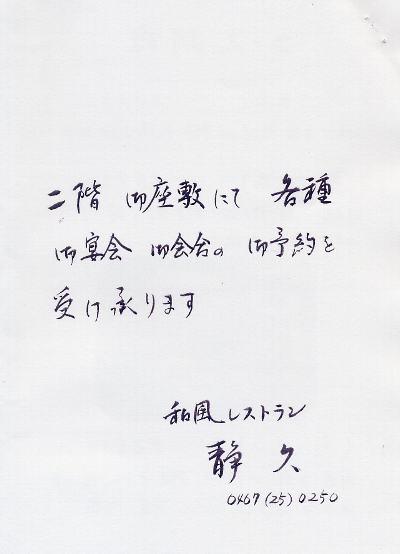 二階 御座敷にて 各種
御宴会 御会合の 御予約を
受け承ります
和風レストラン
静久
0467(25)0250